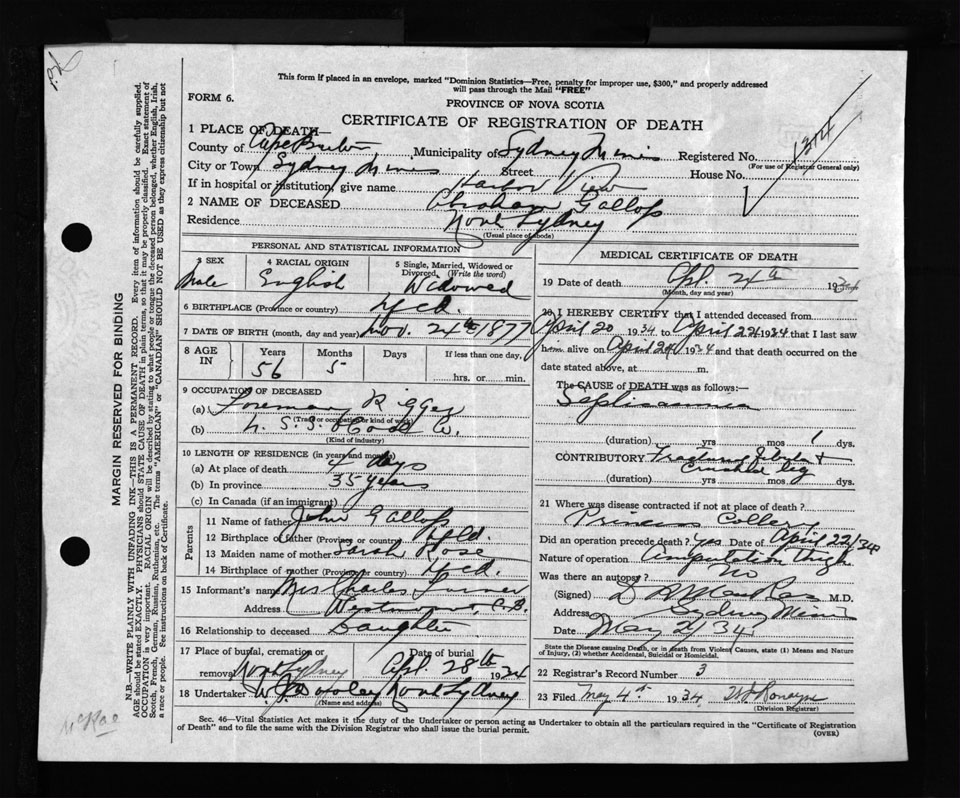 This form if placed in an envelope, marked "Dominion Statistics—Free, penalty for improper use, $300," and properly addressed
will pass through the Mail "FREE"
FORM 6.
PROVINCE OF NOVA SCOTIA
CERTIFICATE OF REGISTRATION OF DEATH
1 PLACE OF DEATH—
County of Cape Breton Municipality of Sydney Mines Registered No. 1314
(For use of Registrar General only)
City or Town Sydney Mines Street House No.
If in hospital or institution, give name Harbor View
2 NAME OF DECEASED Abraham Gallop
Residence North Sydney
(Usual place of abode)
PERSONAL AND STATISTICAL INFORMATION
3 SEX Male
4 RACIAL ORIGIN English
5 Single, Married, Widowed or Divorced, (Write the word) Widowed
6 BIRTHPLACE (Province or country) Nfld.
7 DATE OF BIRTH (month, day and year) Nov. 24th 1877
8 AGE IN
Years Months Days If less than one day,
56 5 hrs. or min.
9 OCCUPATION OF DECEASED
(a) Foreman Rigger
(Trade or occupation or kind of work)
(b) N. S. S. & Coal Co.
(Kind of industry)
10 LENGTH OF RESIDENCE (in years and months)
(a) At place of death 4 days
(b) In province 35 years
(c) In Canada (if an immigrant)
Parents
11 Name of father John Gallop
12 Birthplace of father (Province or country) Nfld.
13 Maiden name of mother Sarah Rose
14 Birthplace of mother (Province or country) Nfld.
15 Informant's name Mrs Charles Turner
Address Westmount, C.B.
16 Relationship to deceased Daughter
17 Place of burial, cremation or removal North Sydney Date of burial Apl. 28th 1934
18 Undertaker North Sydney
(Name and address)
MEDICAL CERTIFICATE OF DEATH
19 Date of death Apl. 24th 1934
(Month, day and year)
20 I HEREBY CERTIFY that I attended deceased from
April 20 1934 to April 24 1934 that I last saw
him alive on April 24 1934 and that death occurred on
date stated above, at m.
The CAUSE of DEATH was as follows:—
Septicaemia
(duration) yrs mos 1 dys.
CONTRIBUTORY Fractured fibula & crushed leg
(duration) yrs mos dys.
21 Where was disease contracted if not at place of death?
Princess Colliery
Did an operation precede death? yes Date of April 22/34
Nature of operation Amputation thigh
Was there an autopsy? No
(Signed) M.D.
Address Sydney Mines
Date May 2/34
State the Disease Causing Death, or in death from Violent Causes, state (1) Means and Nature
of Injury, (2) whether Accidental, Suicidal or Homicidal.
22 Registrar's Record Number 3
23 Filed May 4th 1934
(Division Registrar)
Sec. 46—Vital Statistics Act makes it the duty of the Undertaker or person acting as Undertaker to obtain all the particulars required in the "Certificate of Registration
of Death" and to file the same with the Division Registrar who shall issue the burial permit.
(OVER)
MARGIN RESERVED FOR BINDING
N.B.—WRITE PLAINLY WITH UNFADING INK—THIS IS A PERMANENT RECORD. Every item of information should be carefully supplied.
AGE should be stated EXACTLY. PHYSICIANS should STATE CAUSE OF DEATH in plain terms, so that it may be properly classified. Exact statement of
OCCUPATION is very important. RACIAL ORIGIN will be described by stating to what people or tongue the deceased person belonged, whether English, Irish,
Scotch, French, German, Russian, Ruthenian, etc. The terms "AMERICAN" or "CANADIAN" SHOULD NOT BE USED as they express citizenship but not
a race or people. See instructions on back of Certificate.
McRae